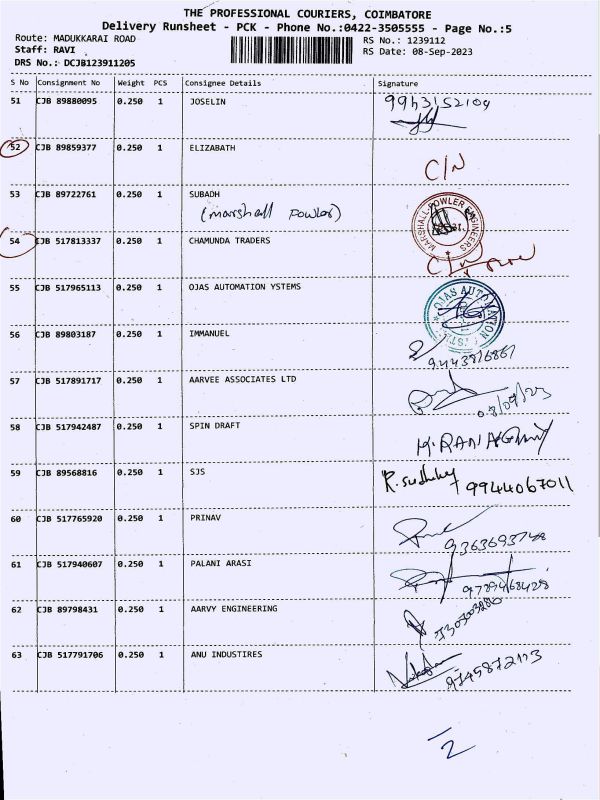 THE PROFESSIONAL COURIERS, COIMBATORE
Delivery Runsheet - PCK - Phone No.:0422-3505555 - Page No.:5
Route: MADUKKARAI ROAD
RS No.: 1239112
Staff: RAVI
RS Date: 08-Sep-2023
DRS No.: DCJB123911205
S No Consignment No Weight PCS Consignee Details Signature
51 CJB 89880095 0.250 1 JOSELIN 9943152104
52 CJB 89859377 0.250 1 ELIZABATH C/N
53 CJB 89722761 0.250 1 SUBADH
(marshall Fowler)
MARSHALL-FOWLER ENGINEERS
54 CJB 517813337 0.250 1 CHAMUNDA TRADERS
55 CJB 517965113 0.250 1 OJAS AUTOMATION YSTEMS OJAS AUTOMATION
56 CJB 89803187 0.250 1 IMMANUEL
57 CJB 517891717 0.250 1 AARVEE ASSOCIATES LTD 08/09/23
58 CJB 517942487 0.250 1 SPIN DRAFT
59 CJB 89568816 0.250 1 SJS 9944067011
60 CJB 517765920 0.250 1 PRINAV 9363693748
61 CJB 517940607 0.250 1 PALANI ARASI 9789468428
62 CJB 89798431 0.250 1 AARVY ENGINEERING
63 CJB 517791706 0.250 1 ANU INDUSTIRES